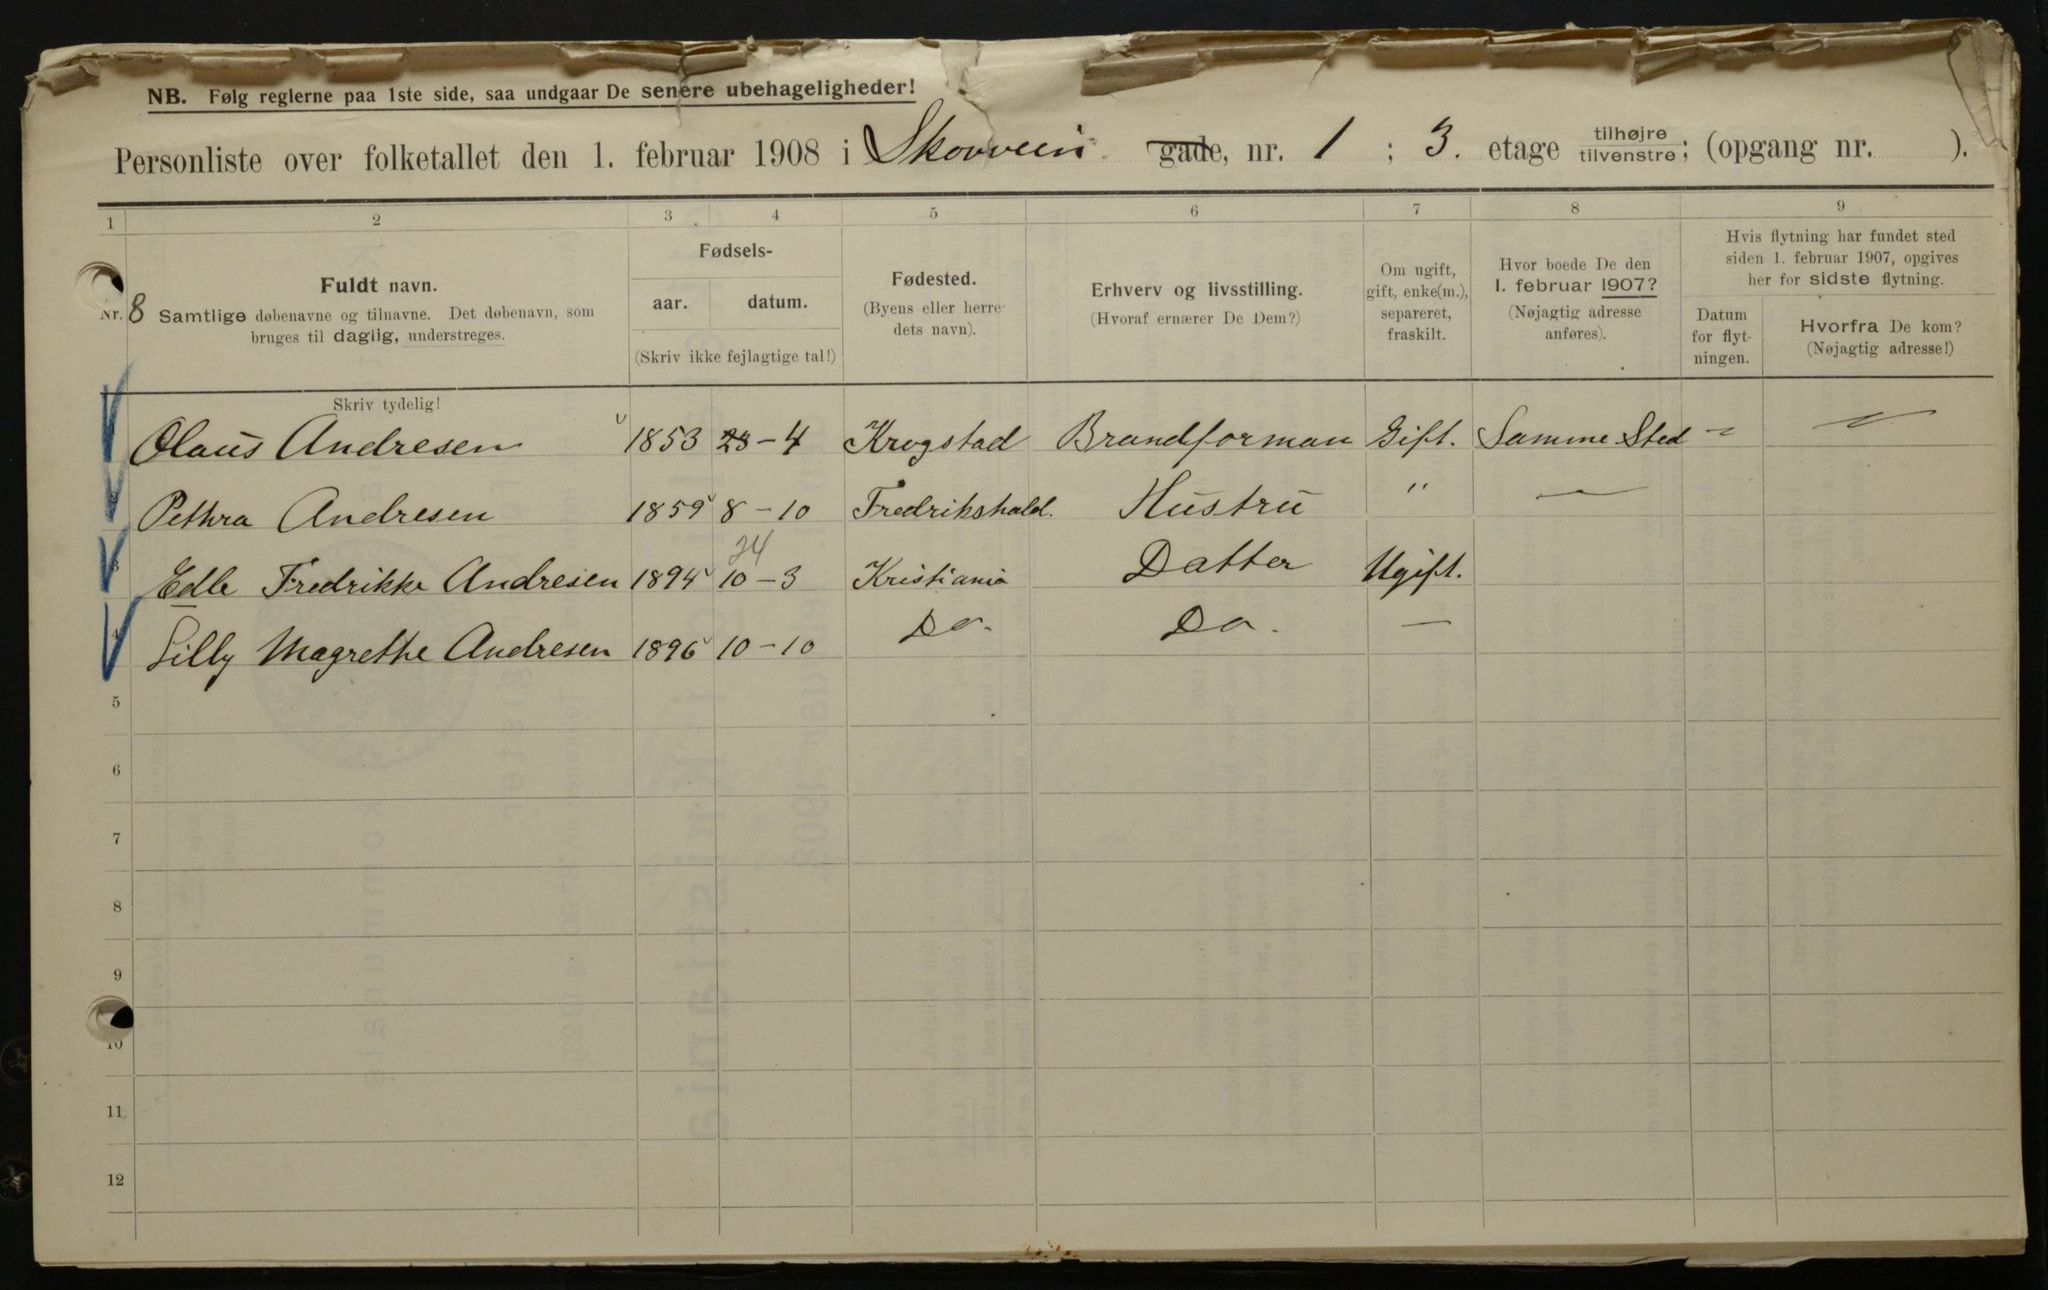 NB. Følg reglerne paa 1ste side, saa undgaar De senere ubehageligheder!
Personliste over folketallet den 1. februar 1908 i Skovveien gade, nr. 1 ; 3. etage tilhøjre tilvenstre; (opgang nr. ).
1 2 3 4 5 6 7 8 9
Nr. 8
Fuldt navn.
Samtlige døbenavne og tilnavne. Det døbenavn, som
bruges til daglig, understreges.
Skriv tydelig!
Fødsels-
aar. datum.
(Skriv ikke fejlagtige tal!)
Fødested.
(Byens eller herre-
dets navn).
Erhverv og livsstilling.
(Hvoraf ernærer De Dem?)
Om ugift,
gift, enke(m.),
separeret,
fraskilt.
Hvor boede De den
1. februar 1907?
(Nøjagtig adresse
anføres).
Hvis flytning har fundet sted
siden 1. februar 1907, opgives
her for sidste flytning.
Datum
for flyt-
ningen.
Hvorfra De kom?
(Nøjagtig adresse!)
Olaus Andresen 1853 23-4 Krogstad Brandforman Gift. Samme Sted
Pethra Andresen 1859 8-10 Fredrikshald. Hustru " —
24
Edle Fredrikke Andresen 1894 10-3 Kristiania Datter Ugift.
4 Lilly Magrethe Andresen 1896 10-10 Do. Do. —
5
6
7
8
9
10
11
12